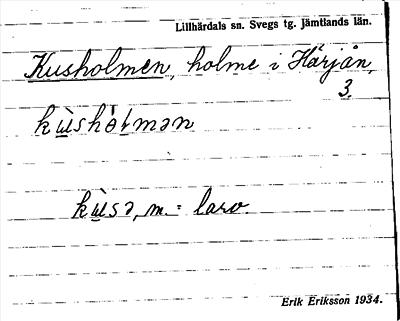 Lillhärdals sn. Svegs tg. Jämtlands län.
Kusholmen, holme i Härjån,
3
kùshòlmən
kùsə, m. = larv.
Erik Eriksson 1934.